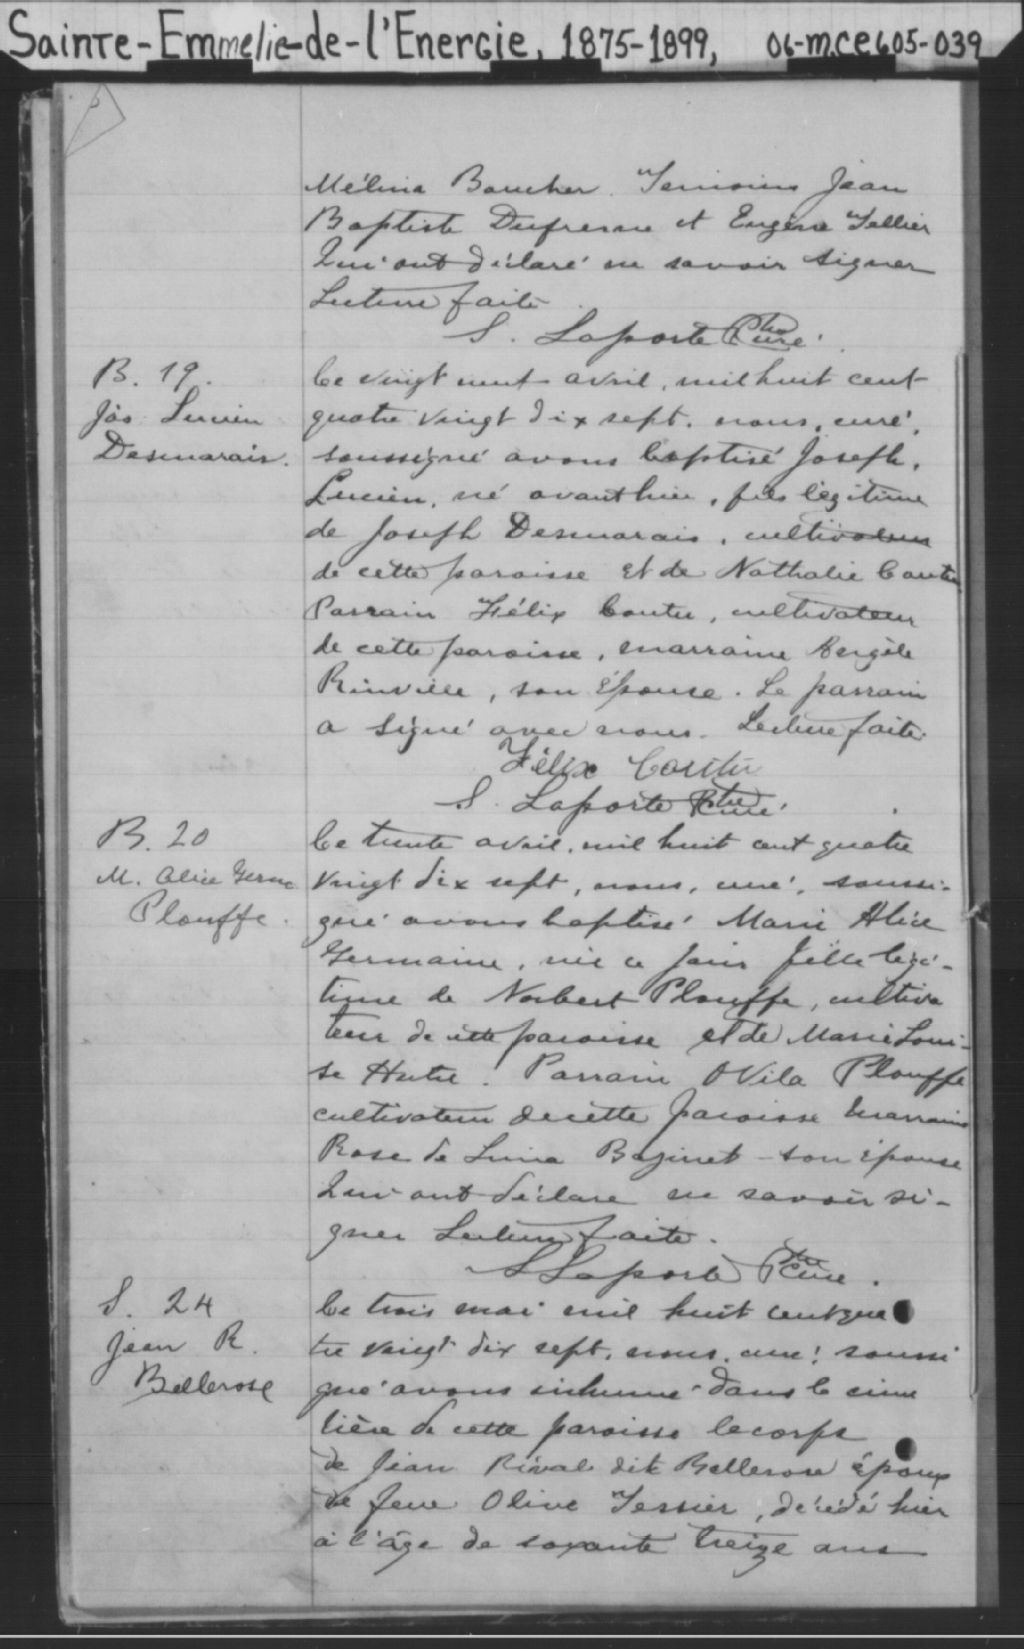 Sainte-Emmelie-de-l'Energie, 1875-1899, 06-M.CE605-039
Mélina Boucher. Temoins Jean
Baptiste Dufresne et Eugène Tellier
Qui ont déclaré ne savoir signer
Lecture faite
S. Laporte Ptre Curé.
B. 19.
Jos Lucien
Desmarais.
Ce vingt neuf avril, mil huit cent
quatre vingt dix sept. nous, curé,
soussigné avons baptisé Joseph,
Lucien, né avant hier, fils légitime
de Joseph Desmarais, cultivateur
de cette paroisse et de Nathalie Coutu
Parrain Félix Coutu, cultivateur
de cette paroisse, marraine Angèle
Rinville, son épouse. Le parrain
a signé avec nous. Lecture faite.
Félix Coutu
S. Laporte Ptre Curé.
B. 20
M. Alice Germ
Plouffe.
Ce trente avril, mil huit cent quatre
vingt dix sept, nous, curé, soussi-
gné avons baptisé Marie Alice
Germaine, née ce jour fille légi-
time de Norbert Plouffe, cultiva
teur de cette paroisse et de Marie Loui-
se Hutre. Parrain Ovila Plouffe
cultivateur de cette paroisse Marraine
Rose de Lima Bazinet son épouse
Qui ont déclare ne savoir si-
gner Lecture faite.
S Laporte Ptre Curé.
S. 24
Jean R.
Bellerose
Ce trois mai mil huit cent qua
tre vingt dix sept, nous, curé, soussi
gné avons inhumé dans le cime
tière de cette paroisse le corps
de Jean Rival dit Bellerose époux
de feue Olive Tessier, décédé hier
à l'âge de soxante treize ans